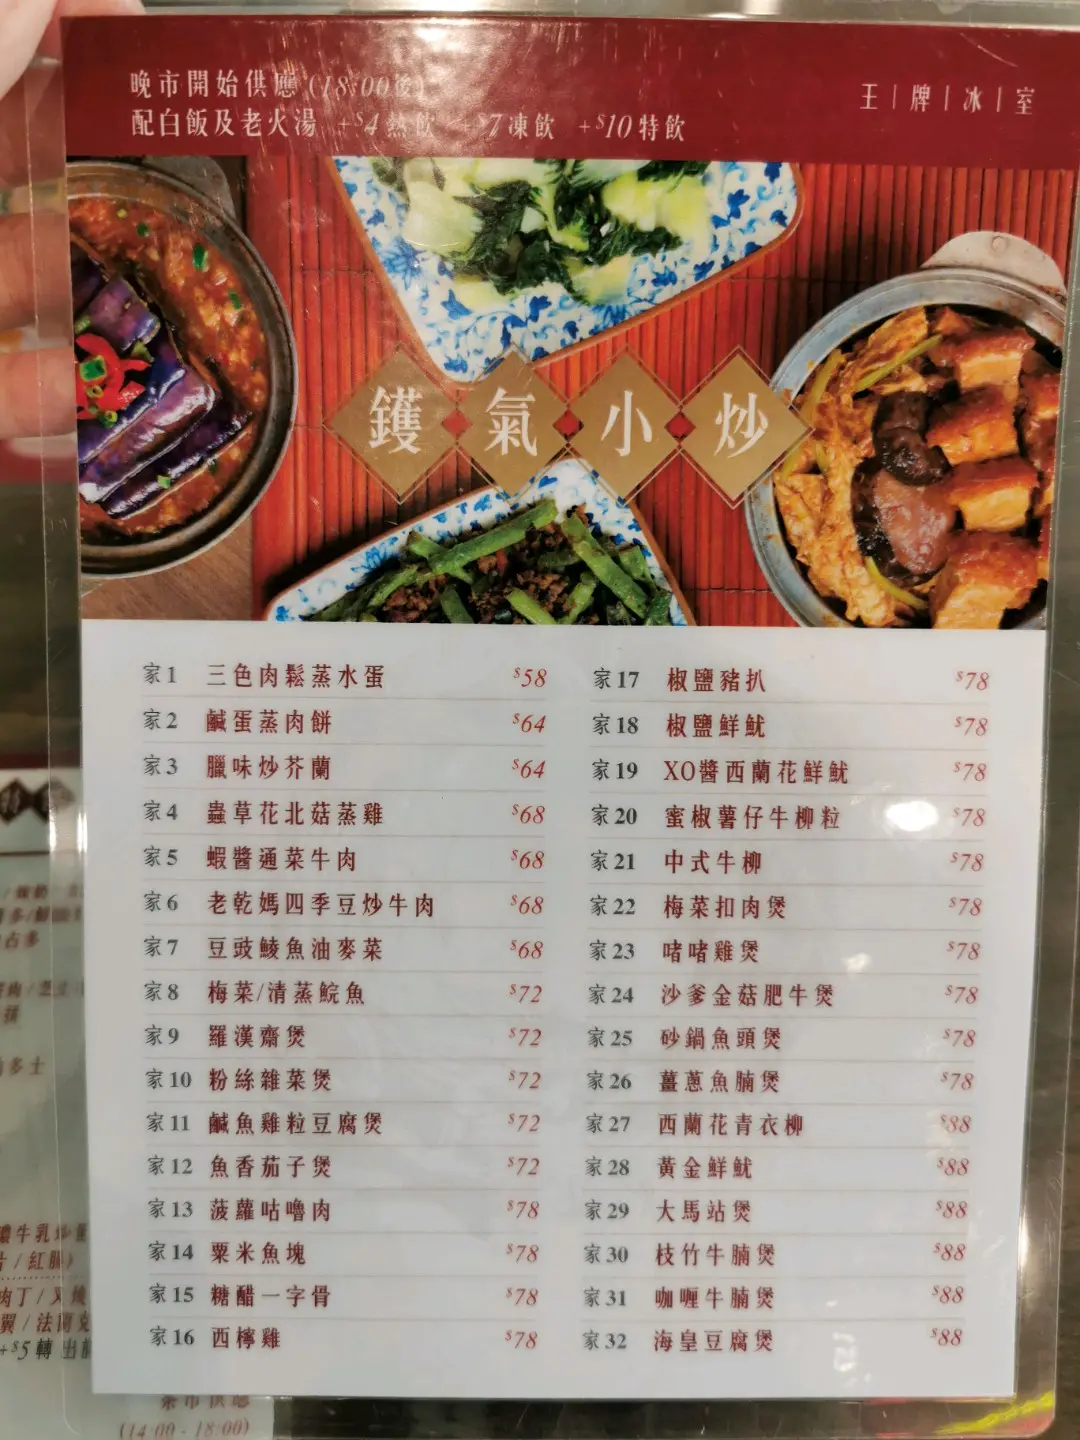 晚市開始供應 (18:00後)
配白飯及老火湯 +$4熱飲 +$7凍飲 +$10特飲
王|牌|冰|室
鑊氣小炒
家1 三色肉鬆蒸水蛋 $58
家2 鹹蛋蒸肉餅 $64
家3 臘味炒芥蘭 $64
家4 蟲草花北菇蒸雞 $68
家5 蝦醬通菜牛肉 $68
家6 老乾媽四季豆炒牛肉 $68
家7 豆豉鯪魚油麥菜 $68
家8 梅菜/清蒸鯇魚 $72
家9 羅漢齋煲 $72
家10 粉絲雜菜煲 $72
家11 鹹魚雞粒豆腐煲 $72
家12 魚香茄子煲 $72
家13 菠蘿咕嚕肉 $78
家14 粟米魚塊 $78
家15 糖醋一字骨 $78
家16 西檸雞 $78
家17 椒鹽豬扒 $78
家18 椒鹽鮮魷 $78
家19 XO醬西蘭花鮮魷 $78
家20 蜜椒薯仔牛柳粒 $78
家21 中式牛柳 $78
家22 梅菜扣肉煲 $78
家23 啫啫雞煲 $78
家24 沙爹金菇肥牛煲 $78
家25 砂鍋魚頭煲 $78
家26 薑蔥魚腩煲 $78
家27 西蘭花青衣柳 $88
家28 黃金鮮魷 $88
家29 大馬站煲 $88
家30 枝竹牛腩煲 $88
家31 咖喱牛腩煲 $88
家32 海皇豆腐煲 $88
占多
多士
濃牛乳炒蛋
片/紅腸)
肉丁/叉燒
翼/法蘭克
+$5轉
茶市供應
(14:00 - 18:00)